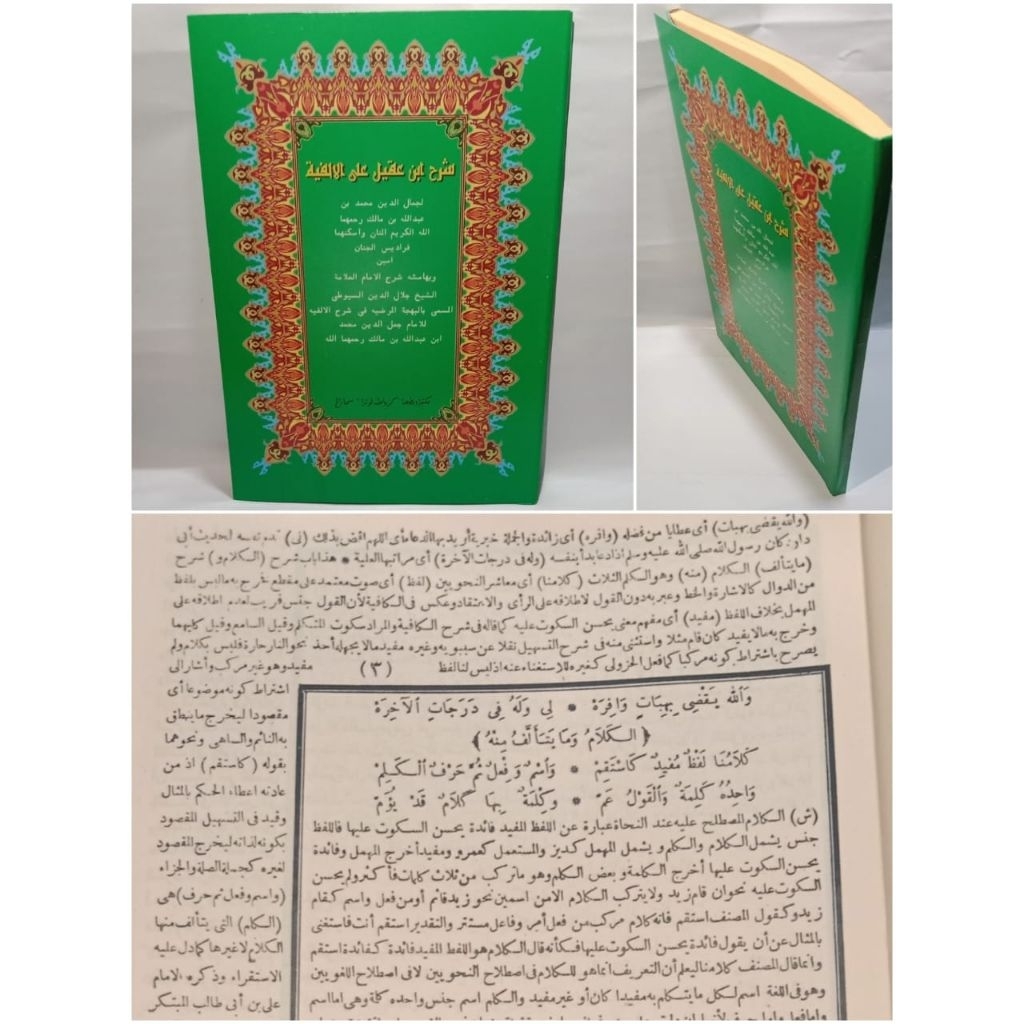 شرح ابن عقيل على الالفية
لجمال الدين محمد بن
عبدالله بن مالك رحمهما
الله الكريم المنان وأسكنهما
فراديس الجنان
امين
وبهامشه شرح الامام العلامة
الشيخ جلال الدين السيوطى
المسمى بالبهجة المرضيه فى شرح الالفيه
للامام جمل الدين محمد
ابن عبدالله بن مالك رحمهما الله
شرح ابن عقيل على الالفية
(والله يقضى بهبات) أى عطايا من فضله (وافره) أى زائدة والجملة خبرية أريد بها الدعاء أى اللهم اقض بذلك (لى) قدم نفسه لحديث أبى
داود كان رسول الله صلى الله عليه وسلم اذا دعا بدأ بنفسه (وله فى درجات الآخرة) أى مراتبها العلية * هذا باب شرح (الكلام و) شرح
(ما يتألف) الكلام (منه) وهو الكلم الثلاث (كلامنا) أى معاشر النحويين (لفظ) أى صوت معتمد على مقطع فخرج به ما ليس بلفظ
من الدوال كالاشارة والخط وعبر به دون القول لاطلاقه على الرأى والاعتقاد وعكس فى الكافية لأن القول جنس قريب لعدم اطلاقه على
المهمل بخلاف اللفظ (مفيد) أى مفهم معنى يحسن السكوت عليه كما قاله فى شرح الكافية والمراد سكوت المتكلم وقيل السامع وقيل كليهما
وخرج به ما لا يفيد كان قام مثلا واستثنى منه فى شرح التسهيل نقلا عن سيبويه وغيره مفيد ما لا يجهله أحد نحو النار حارة فليس بكلام ولم
يصرح باشتراط كونه مركبا كما فعل الجزولى كغيره للاستغناء عنه اذ ليس لنا لفظ
(٣)
مفيد وهو غير مركب وأشار الى
اشتراط كونه موضوعا أى
مقصودا ليخرج ما ينطق
به النائم والساهى ونحوهما
بقوله (كاستقم) اذ من
عادته اعطاء الحكم بالمثال
وقيد فى التسهيل المقصود
بكونه لذاته ليخرج المقصود
لغيره كجملة الصلة والجزاء
(واسم وفعل ثم حرف) هى
(الكلم) التى يتألف منها
الكلام لا غيرها كما دل عليه
الاستقراء وذكره الامام
على بن أبى طالب المبتكر
وَاللهُ يَقْضِى بِهِبَاتٍ وَافِرَهْ * لِى وَلَهُ فِى دَرَجَاتِ الْآخِرَهْ
﴿الكَلَامُ وَمَا يَتَأَلَّفُ مِنْهُ﴾
كَلَامُنَا لَفْظٌ مُفِيدٌ كَاسْتَقِمْ * وَاسْمٌ وَفِعْلٌ ثُمَّ حَرْفٌ الْكَلِمْ
وَاحِدُهُ كَلِمَةٌ وَالْقَوْلُ عَمّ * وَكِلْمَةٌ بِهَا كَلَامٌ قَدْ يُؤَمّ
(ش) الكلام المصطلح عليه عند النحاة عبارة عن اللفظ المفيد فائدة يحسن السكوت عليها فاللفظ
جنس يشمل الكلام والكلم ويشمل المهمل كديز والمستعمل كعمرو ومفيد أخرج المهمل وفائدة
يحسن السكوت عليها أخرج الكلمة وبعض الكلم وهو ما تركب من ثلاث كلمات فأكثر ولم يحسن
السكوت عليه نحو ان قام زيد ولا يتركب الكلام الا من اسمين نحو زيد قائم أو من فعل واسم كقام
زيد وكقول المصنف استقم فانه كلام مركب من فعل أمر وفاعل مستتر والتقدير استقم أنت فاستغنى
بالمثال عن أن يقول فائدة يحسن السكوت عليها فكأنه قال الكلام هو اللفظ المفيد فائدة كفائدة استقم
وانما قال المصنف كلامنا ليعلم أن التعريف انما هو للكلام فى اصطلاح النحويين لا فى اصطلاح اللغويين
وهو فى اللغة اسم لكل ما يتكلم به مفيدا كان أو غير مفيد والكلم اسم جنس واحده كلمة وهى اما اسم